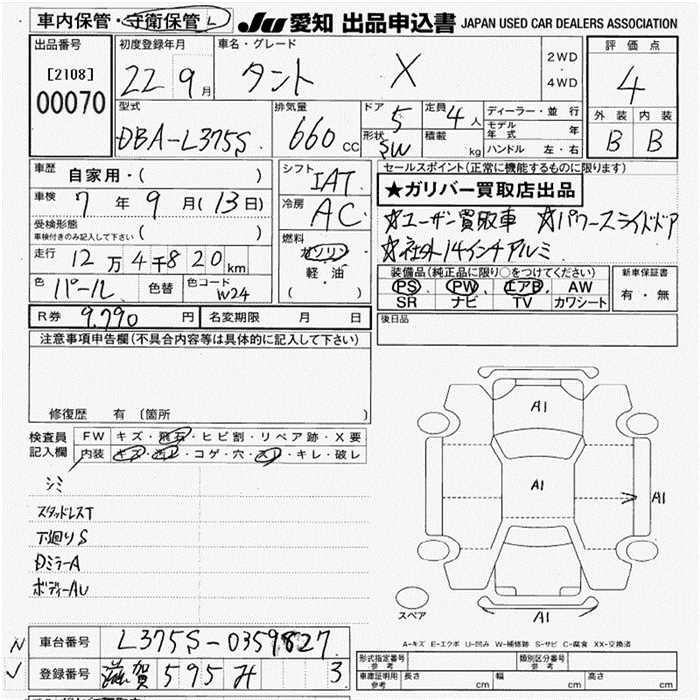 車内保管・守衛保管 L
JU 愛知 出品申込書 JAPAN USED CAR DEALERS ASSOCIATION
出品番号 [2108] 00070
初度登録年月 22 9月
車名・グレード タント X
2WD・4WD
評価点 4
外装 内装
B B
型式 DBA-L375S
排気量 660 cc
ドア 5
形状 SW
定員 4人
積載 kg
ディーラー・並行
モデル年式 年
ハンドル 左・右
車歴 自家用・( )
車検 7年 9月(13日)
受検形態
車検付きのみ記入して下さい ( )
走行 12万4千820km
色 パール 色替 色コード W24
シフト IAT
冷房 AC
燃料 ガソリン
軽・油
( )
セールスポイント(正常に機能するものに限ります)
★ガリバー買取店出品
☆ユーザー買取車 ☆パワースライドドア
☆社外14インチアルミ
装備品(純正品に限り○をつけてください)
PS PW エアB AW
SR ナビ TV カワシート
新車保証書
有・無
R券 9.790円 名変期限 月 日
後日品
注意事項申告欄(不具合内容等は具体的に記入して下さい)
修復歴 有(箇所 )
検査員記入欄
FW キズ・飛石・ヒビ割・リペア跡・X要
内装 キズ・汚レ・コゲ・穴・スレ・キレ・破レ
シミ
スタッドレスT
下廻りS
DミラーA
ボディーAU
A1
A1
A1
A1
スペア
A-キズ E-エクボ U-凹み W-補修跡 S-サビ C-腐食 XX-交換済
車台番号 L375S-0359827
登録番号 滋賀 595 み 3
形式指定番号 参考
類別区分番号 参考
車庫証明用 参考 長さ cm 幅 cm 高さ cm